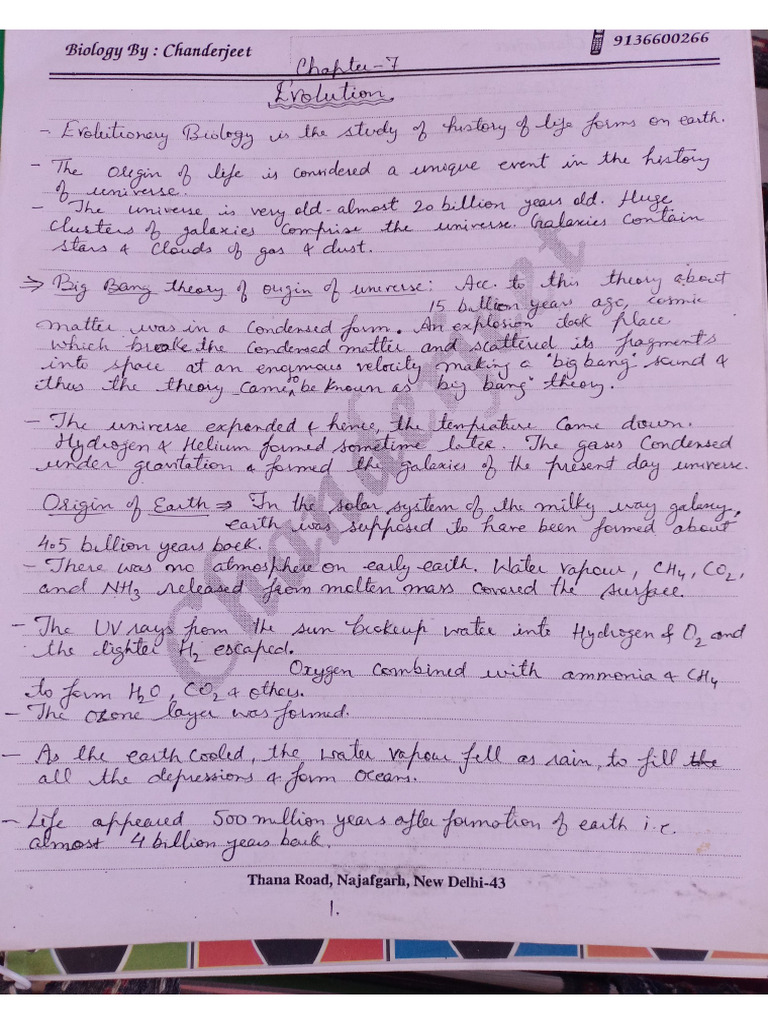 Biology By : Chanderjeet
9136600266
Chapter-7
Evolution
- Evolutionary Biology is the study of history of life forms on earth.
- The origin of life is considered a unique event in the history
of universe.
- The universe is very old - almost 20 billion years old. Huge
clusters of galaxies comprise the universe. Galaxies contain
stars & clouds of gas & dust.
⇒ Big Bang theory of origin of universe: Acc. to this theory about
15 billion years ago, cosmic
matter was in a condensed form. An explosion took place
which broke the condensed matter and scattered its fragments
into space at an enormous velocity making a "big bang" sound &
thus the theory came to be known as "big bang" theory.
- The universe expanded & hence, the temprature came down.
Hydrogen & Helium formed sometime later. The gases condensed
under gravitation & formed the galaxies of the present day universe.
Origin of Earth ⇒ In the solar system of the milky way galaxy,
earth was supposed to have been formed about
4.5 billion years back.
- There was no atmosphere on early earth. Water vapour, CH4, CO2,
and NH3 released from molten mass covered the surface.
- The UV rays from the sun brokeup water into Hydrogen & O2 and
the lighter H2 escaped.
Oxygen combined with ammonia & CH4
to form H2O, CO2 & others.
- The ozone layer was formed.
- As the earth cooled, the water vapour fell as rain, to fill the
all the depressions & form oceans.
- Life appeared 500 million years after formation of earth i.e.
almost 4 billion years back.
Chanderjeet
Thana Road, Najafgarh, New Delhi-43
1.